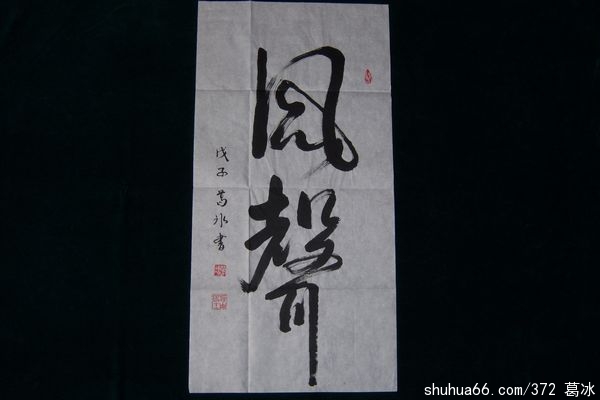 風聲
戊子葛冰書
shuhua66.com/372 葛冰